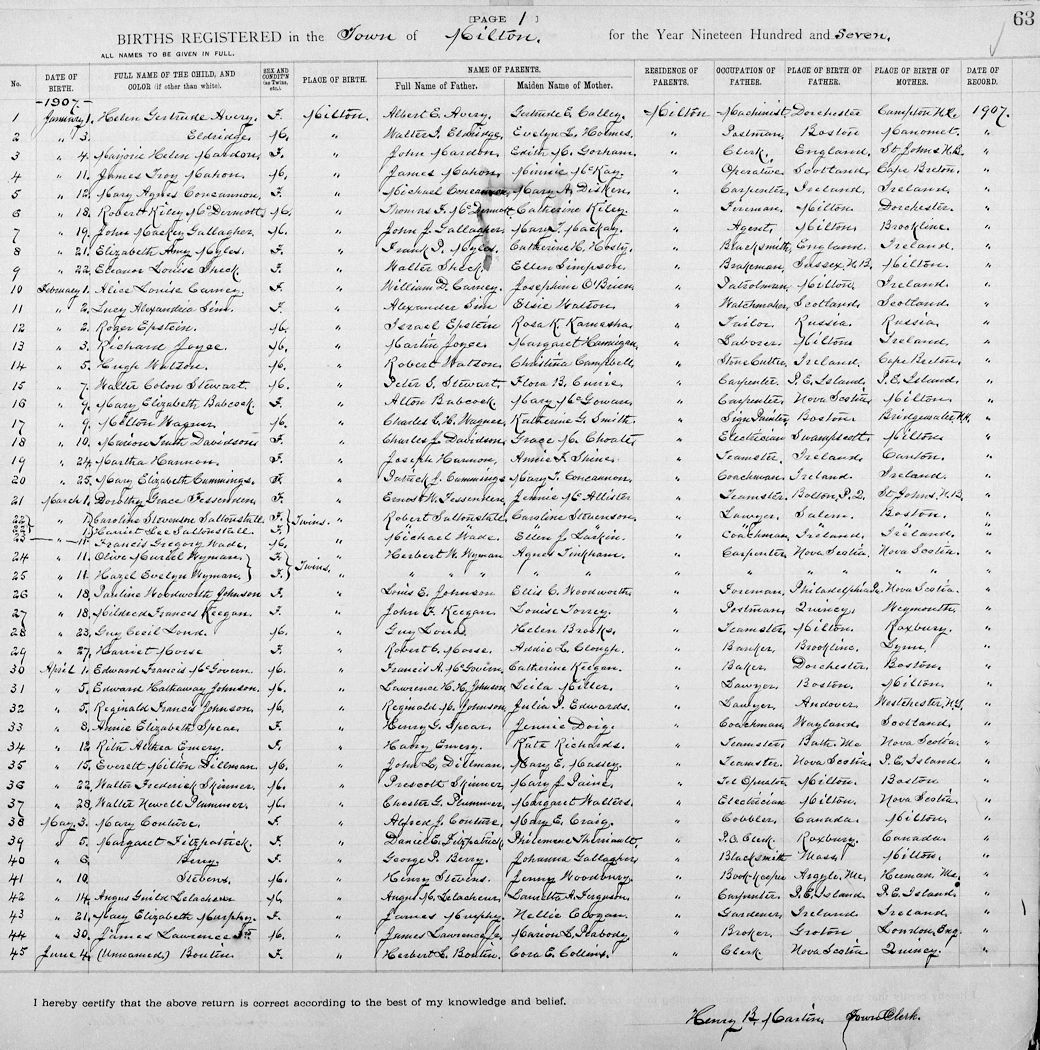 [PAGE 1 ]
63
BIRTHS REGISTERED in the Town of Milton. for the Year Nineteen Hundred and Seven.
ALL NAMES TO BE GIVEN IN FULL.
No. DATE OF BIRTH. FULL NAME OF THE CHILD, AND COLOR (if other than white). SEX AND CONDIT'N (as Twins, etc.) PLACE OF BIRTH. NAME OF PARENTS. Full Name of Father. Maiden Name of Mother. RESIDENCE OF PARENTS. OCCUPATION OF FATHER. PLACE OF BIRTH OF FATHER. PLACE OF BIRTH OF MOTHER. DATE OF RECORD.
-1907.-
1 January 1. Helen Gertrude Avery. F. Milton. Albert E. Avery. Gertrude E. Calley. Milton Machinist Dorchester Campton N.H. 1907.
2 " 3. Eldridge. M. " Walter I. Eldridge. Evelyn L. Holmes. " Postman. Boston Manomet. "
3 " 4. Marjorie Helen Mardon. F. " John Mardon. Edith M. Gorham. " Clerk. England. St Johns N.B. "
4 " 11. James Troy Mahon. M. " James Mahon. Minnie McKay. " Operative Scotland Cape Breton. "
5 " 12. Mary Agnes Concannon. F. " Michael Concannon. Mary A. Disken. " Carpenter. Ireland. Ireland "
6 " 18. Robert Kiley McDermott. M. " Thomas F. McDermott. Catherine Kiley. " Fireman. Milton Dorchester. "
7 " 19. John Mackey Gallagher. M. " John J. Gallagher. Mary T. Mackay. " Agent. Milton. Brookline. "
8 " 21. Elizabeth Amy Myles. F. " Frank P. Myles. Catherine H. Hosty. " Blacksmith. England. Ireland. "
9 " 22. Eleanor Louise Sheck. F. " Walter Sheck. Ellen Simpson. " Brakeman. Sussex N.B. Milton. "
10 February 1. Alice Louise Carney. F. " William D. Carney. Josephine O'Brien. " Patrolman Milton. Ireland "
11 " 2. Lucy Alexandria Sim. F. " Alexander Sim Elsie Watson. " Watchmaker Scotland. Scotland. "
12 " 2. Roger Epstein. M. " Israel Epstein Rosa K. " Tailor. Russia. Russia. "
13 " 3. Richard Joyce. M. " Martin Joyce. Margaret Hannigan. " Laborer. Milton Ireland. "
14 " 5. Hugh Watson. M. " Robert Watson. Christina Campbell. " Stone Cutter. Ireland. Cape Breton. "
15 " 7. Walter Colon Stewart. M. " Peter S. Stewart. Flora B. Currie. " Carpenter. P.E. Island. P.E. Island. "
16 " 9. Mary Elizabeth Babcock. F. " Alton Babcock. Mary McGowan. " Carpenter Nova Scotia Milton. "
17 " 9. Milton Wagner. M. " Charles Wagner. Katherine G. Smith. " Sign Painter. Boston. Bridgewater "
18 " 10. Marion Truth Davidson F. " Charles J. Davidson Grace M. Choate. " Electrician Swampscott. Milton. "
19 " 24. Martha Hannon. F. " Joseph Hannon. Annie F. Shine. " Teamster. Ireland. Canton. "
20 " 25. Mary Elizabeth Cummings. F. " Patrick J. Cummings. Mary T. Concannon. " Coachman. Ireland. Ireland. "
21 March 1. Dorothy Grace Fessenden. F. " Ernest W. Fessenden. Jennie McAllister " Teamster. Bolton, P.Q. St Johns, N.B. "
22 " 1. Caroline Stevenson Saltonstall. F. Twins. " Robert Saltonstall. Caroline Stevenson. " Lawyer. Salem. Boston. "
22 " 1. Harriet Lee Saltonstall. F. " " " " " "
23 " 11. Francis Gregory Wade. M. " Michael Wade. Ellen J. Larkin. " Coachman. Ireland. Ireland. "
24 " 11. Olive Muriel Wyman. F. Twins. " Herbert W. Wyman Agnes Tinkham. " Carpenter. Nova Scotia. Nova Scotia. "
25 " 11. Hazel Evelyn Wyman. F. " " " " " " " " "
26 " 18. Pauline Woodworth Johnson F. " Louis E. Johnson Ellis C. Woodworth. " Foreman. Philadelphia Pa. Nova Scotia. "
27 " 18. Mildred Frances Keegan. F. " John F. Keegan. Louise Torrey. " Postman. Quincy. Weymouth. "
28 " 23. Guy Cecil Lond. M. " Guy Lond. Helen Brooks. " Teamster. Milton. Roxbury. "
29 " 27. Harriet Morse F. " Robert C. Morse. Addie L. Clough. " Banker. Brookline. Lynn. "
30 April 1. Edward Francis McGovern M. " Francis A. McGovern. Catherine Keegan. " Baker. Dorchester. Boston. "
31 " 5. Edward Hathaway Johnson. M. " Lawrence H.H. Johnson Leila Miller. " Lawyer. Boston. Milton. "
32 " 5. Reginald Francis Johnson. M. " Reginald M. Johnson. Julia P. Edwards. " Lawyer. Andover. Westchester, N.Y. "
33 " 8. Annie Elizabeth Spear. F. " Henry G. Spear. Jennie Doig. " Coachman. Wayland. Scotland. "
34 " 12. Ruth Althea Emery. F. " Harry Emery. Kate Richards. " Teamster. Bath Me. Nova Scotia. "
35 " 15. Everett Milton Dillman. M. " John L. Dillman. Mary E. Massey. " Teamster. Nova Scotia. P.E. Island. "
36 " 22. Walter Frederick Skinner. M. " Prescott Skinner. Mary J. Paine. " Tel Operator Milton. Boston "
37 " 28. Walter Newell Plummer. M. " Chester G. Plummer. Margaret Walters. " Electrician Milton. Nova Scotia. "
38 May 3. Mary Couture. F. " Alfred J. Couture. Mary E. Craig. " Cobbler. Canada. Milton. "
39 " 5. Margaret Fitzpatrick. F. " Daniel E. Fitzpatrick. Philemene Theriault. " P.O. Clerk. Roxbury. Canada. "
40 " 6. Berry. F. " George P. Berry. Johanna Gallagher. " Blacksmith Mass. Milton. "
41 " 10. Stevens. M. " Henry Stevens. Jenny Woodbury. " Book-keeper Argyle, Me. Herman, Me. "
42 " 14. Angus Guild Lelachern M. " Angus M. Lelachern. A. Ferguson. " Carpenter. P.E. Island. P.E. Island. "
43 " 21. Mary Elizabeth Murphy. F. " James Murphy. Nellie Cdogan. " Gardener. Ireland Ireland. "
44 " 30. James Lawrence 3rd M. " James Lawrence Jr. Marion L. Peabody. " Broker. Groton London, Eng. "
45 June 4. (Unnamed) Boutin. F. " Herbert L. Boutin. Cora E. Collins. " Clerk. Nova Scotia Quincy. "
I hereby certify that the above return is correct according to the best of my knowledge and belief.
Henry B. Martin, Town Clerk.